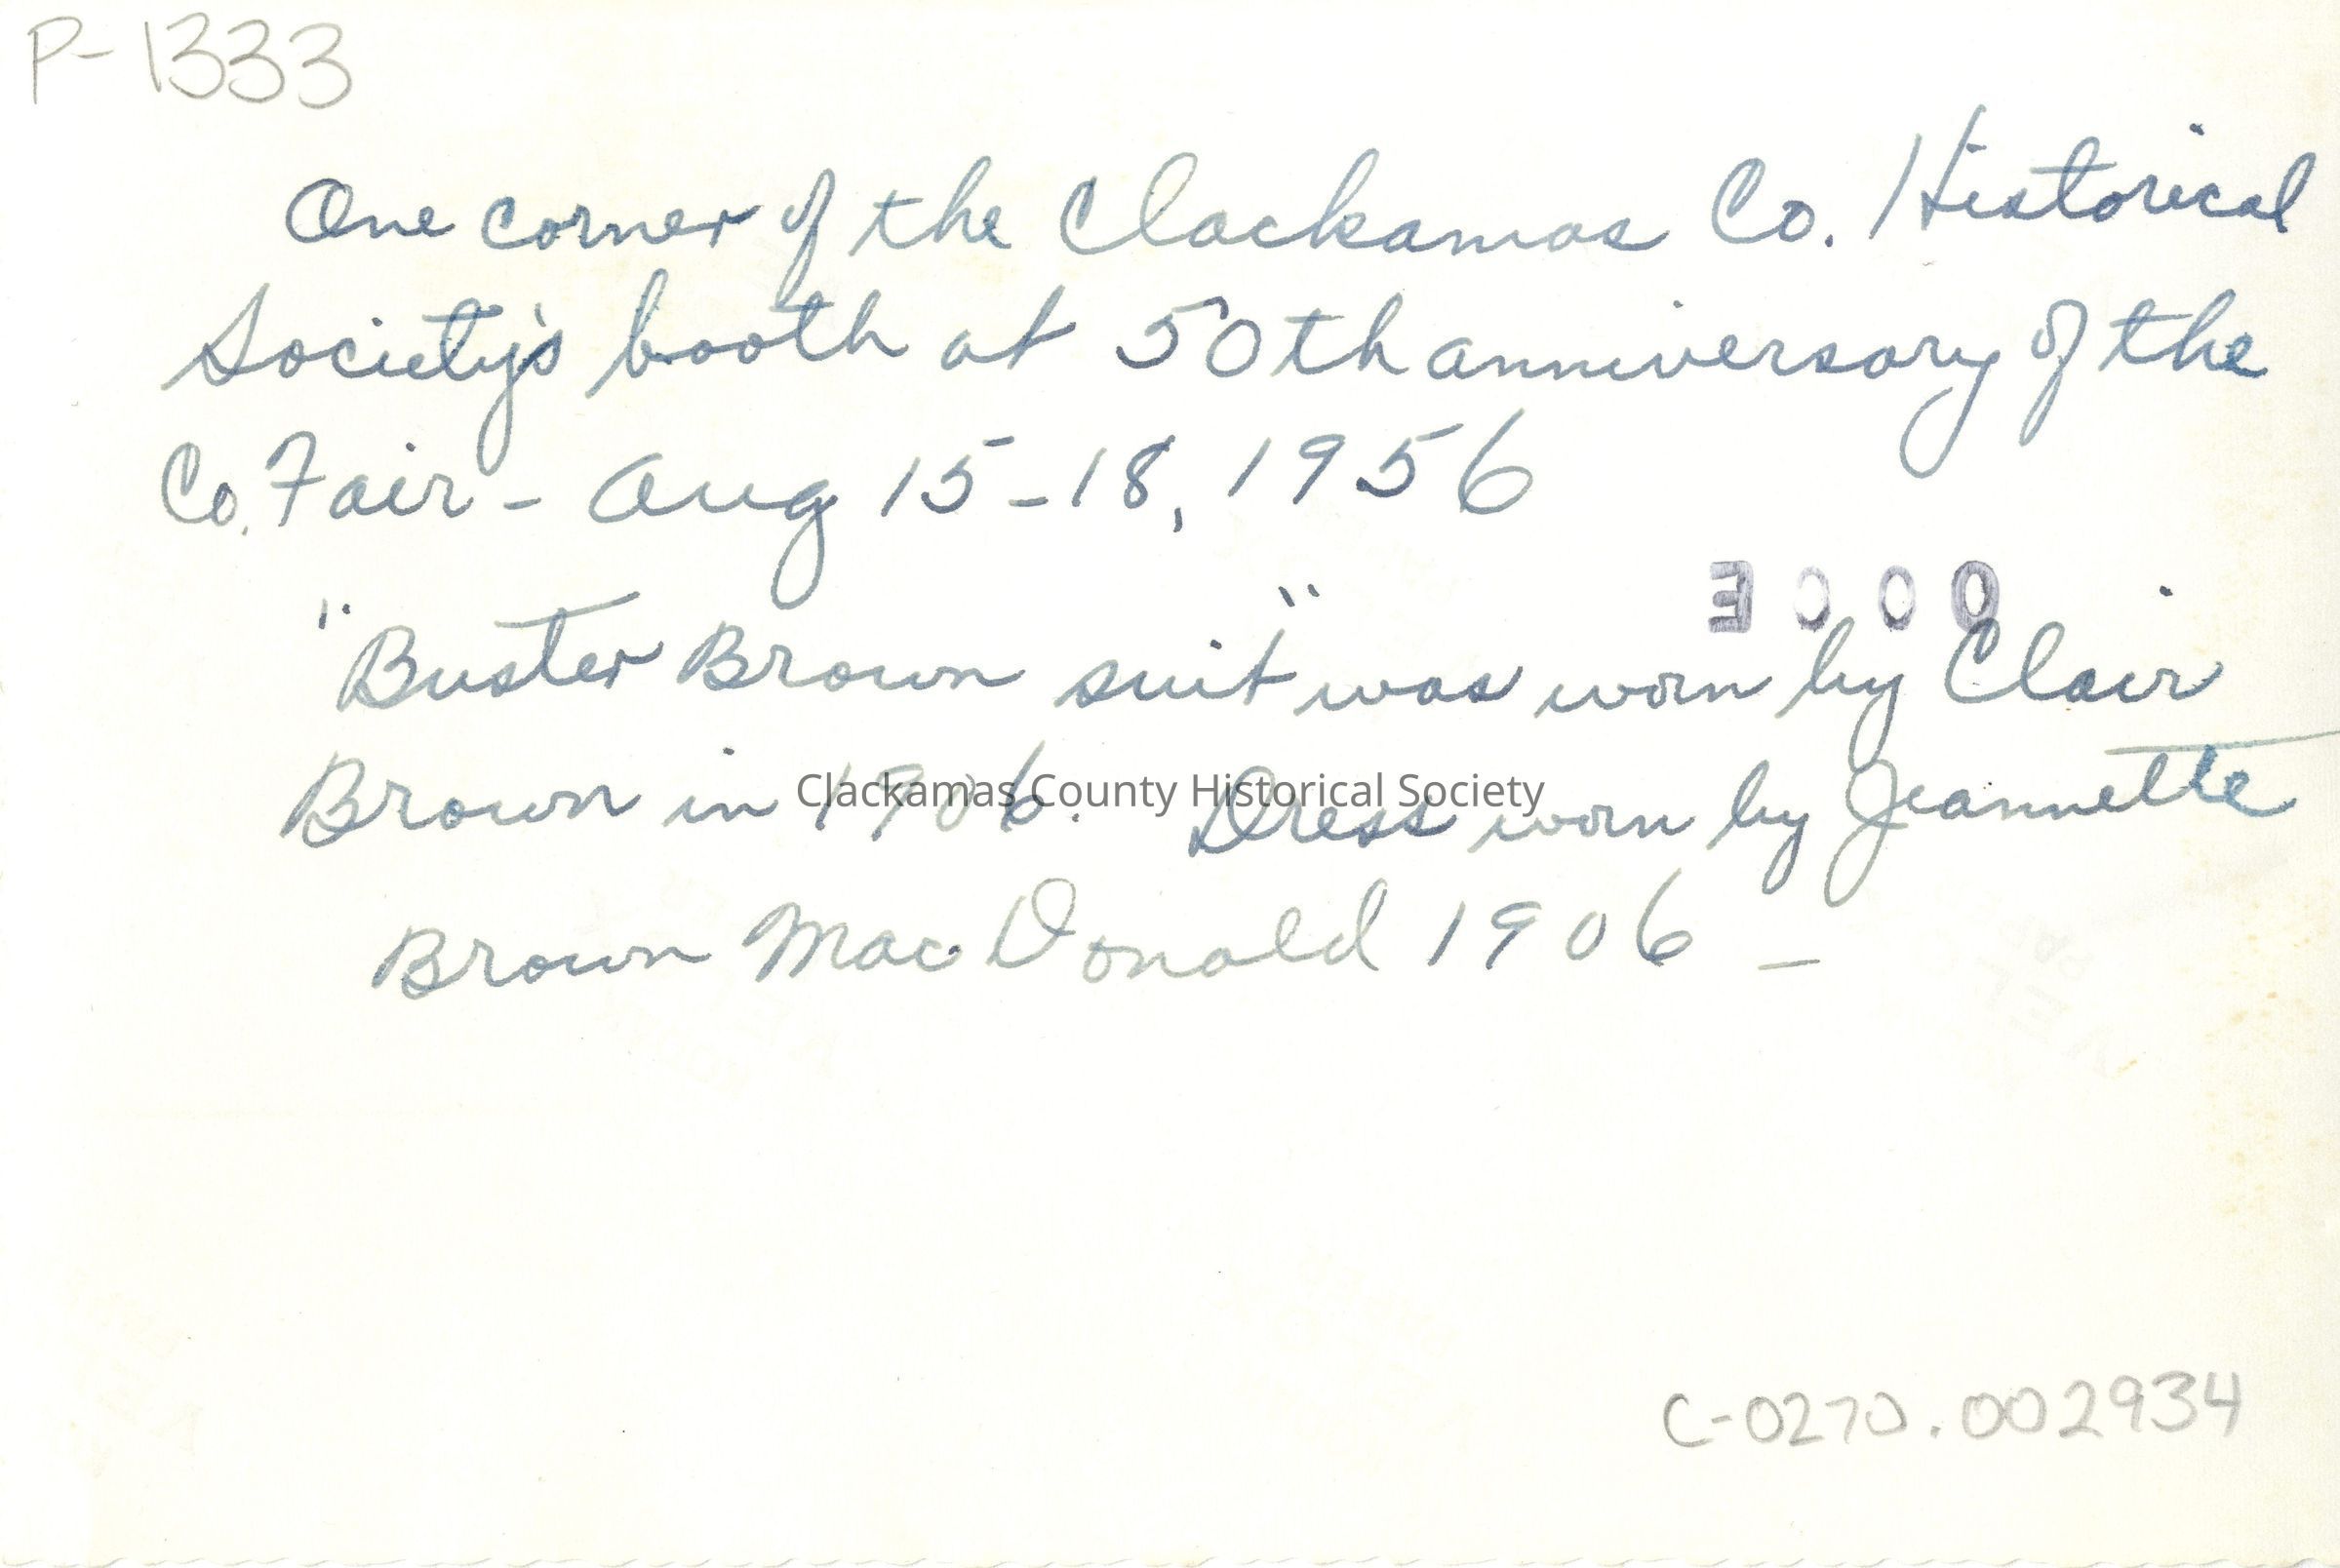 P-1333
One corner of the Clackamas Co. Historical
Society's booth at 50th anniversary of the
Co. Fair - Aug 15-18, 1956
"Buster Brown suit" was worn by Clair
Brown in 1906. Dress worn by Jeannette
Brown MacDonald 1906 -
Clackamas County Historical Society
C-0270.002934